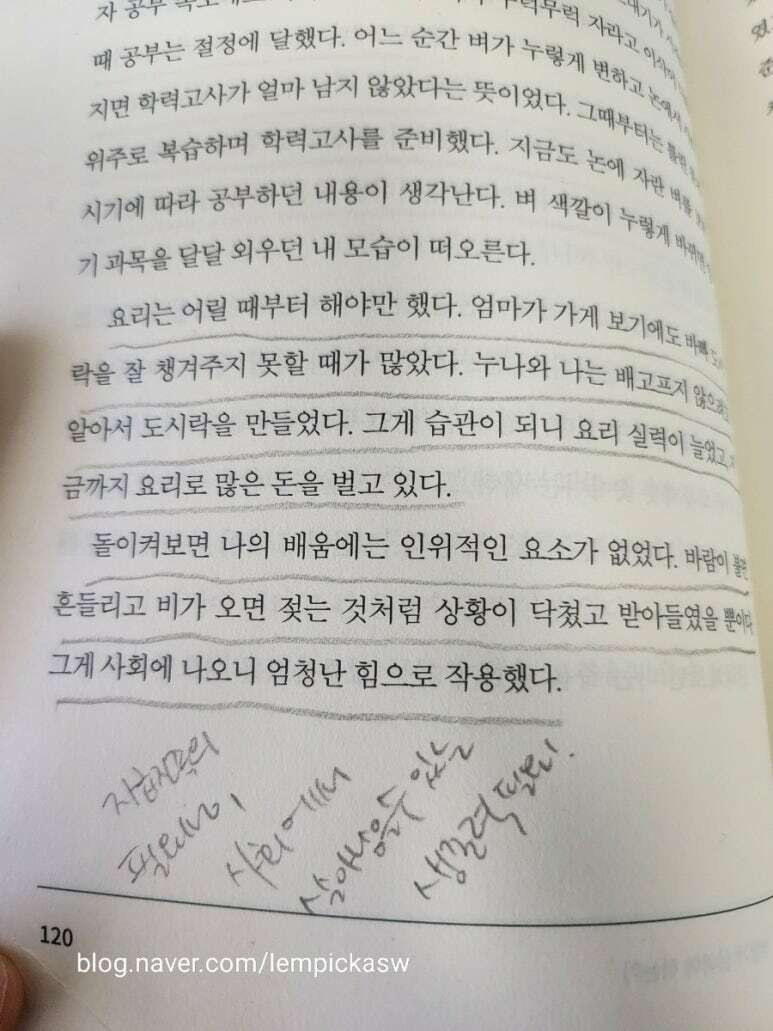 자 공부
때 공부는 절정에 달했다. 어느 순간 벼가 누렇게 변하고 논에서
지면 학력고사가 얼마 남지 않았다는 뜻이었다. 그때부터는 틀린
위주로 복습하며 학력고사를 준비했다. 지금도 논에 자란 벼를
시기에 따라 공부하던 내용이 생각난다. 벼 색깔이 누렇게 바뀌면
기 과목을 달달 외우던 내 모습이 떠오른다.
요리는 어릴 때부터 해야만 했다. 엄마가 가게 보기에도 바빠 도시
락을 잘 챙겨주지 못할 때가 많았다. 누나와 나는 배고프지 않으려고
알아서 도시락을 만들었다. 그게 습관이 되니 요리 실력이 늘었고, 지
금까지 요리로 많은 돈을 벌고 있다.
돌이켜보면 나의 배움에는 인위적인 요소가 없었다. 바람이 불면
흔들리고 비가 오면 젖는 것처럼 상황이 닥쳤고 받아들였을 뿐이다.
그게 사회에 나오니 엄청난 힘으로 작용했다.
사회에서
살아남을수 있는
생활력 필요!
120
blog.naver.com/lempickasw